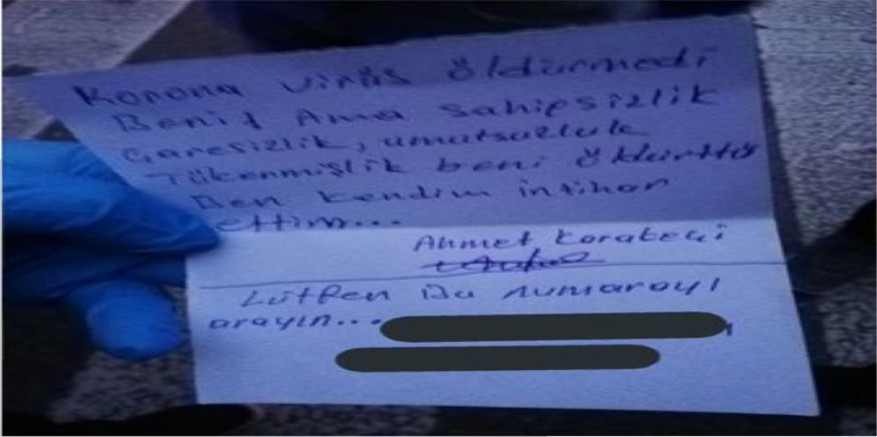 Korona virüs öldürmedi
Beni! Ama sahipsizlik
çaresizlik, umutsuzluk
Tükenmişlik beni öldürttü
Ben kendim intihar
ettim...
Ahmet
Lütfen Bu numarayı
arayın...